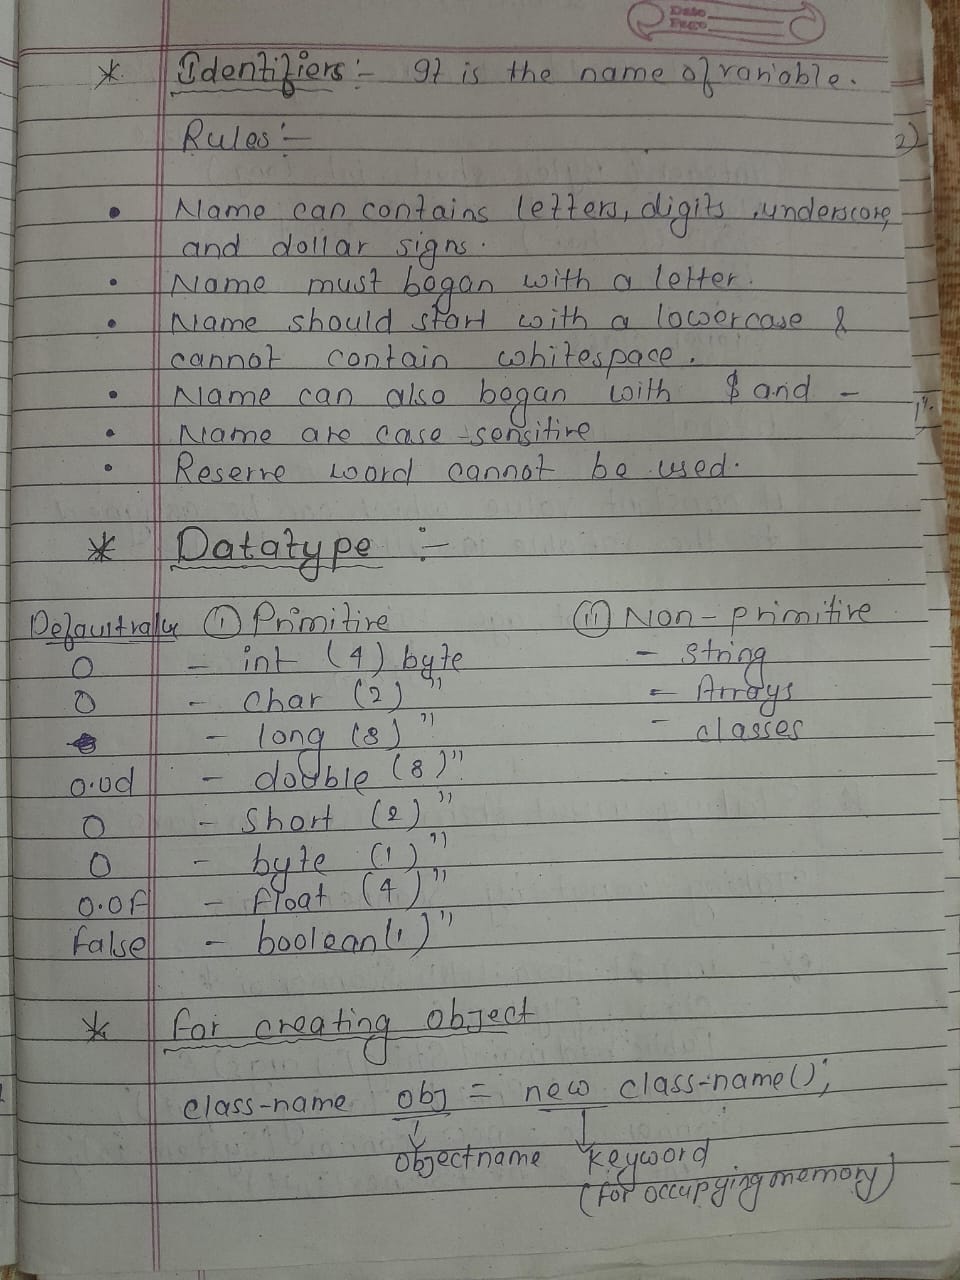 Date
Page
* Identifiers :- It is the name of variable.
Rules :-
2)
• Name can contains letters, digits, underscore,
and dollar signs.
• Name must began with a letter.
• Name should start with a lowercase &
cannot contain whitespace.
• Name can also began with $ and -
• Name are case-sensitive
• Reserve word cannot be used.
* Datatype :-
Default value (i) Primitive (ii) Non-primitive
0 - int (4) byte - string
0 - char (2) " - Arrays
- long (8) " - classes
0.0d - double (8) "
0 - short (2) "
0 - byte (1) "
0.0f - float (4) "
false - boolean (1) "
* for creating object
class-name obj = new class-name();
objectname keyword
(for occupying memory)